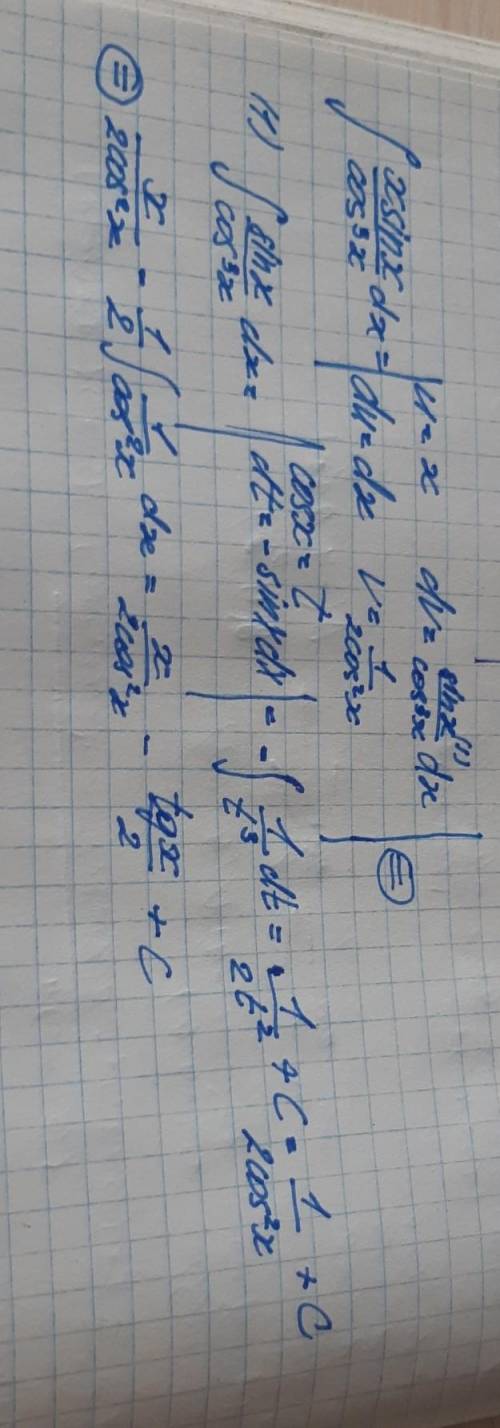 ∫ x sin x / cos³x dx = | u = x   dv = sin x / cos³x ⁽¹⁾ dx | ⊜
| du = dx   v = 1 / 2cos²x |
(1) ∫ sin x / cos³x dx = | cos x = t | = - ∫ 1 / t³ dt = 1 / 2t² + C = 1 / 2cos²x + C
| dt = - sin x dx |
⊜ x / 2cos²x - 1 / 2 ∫ 1 / cos²x dx = x / 2cos²x - tg x / 2 + C